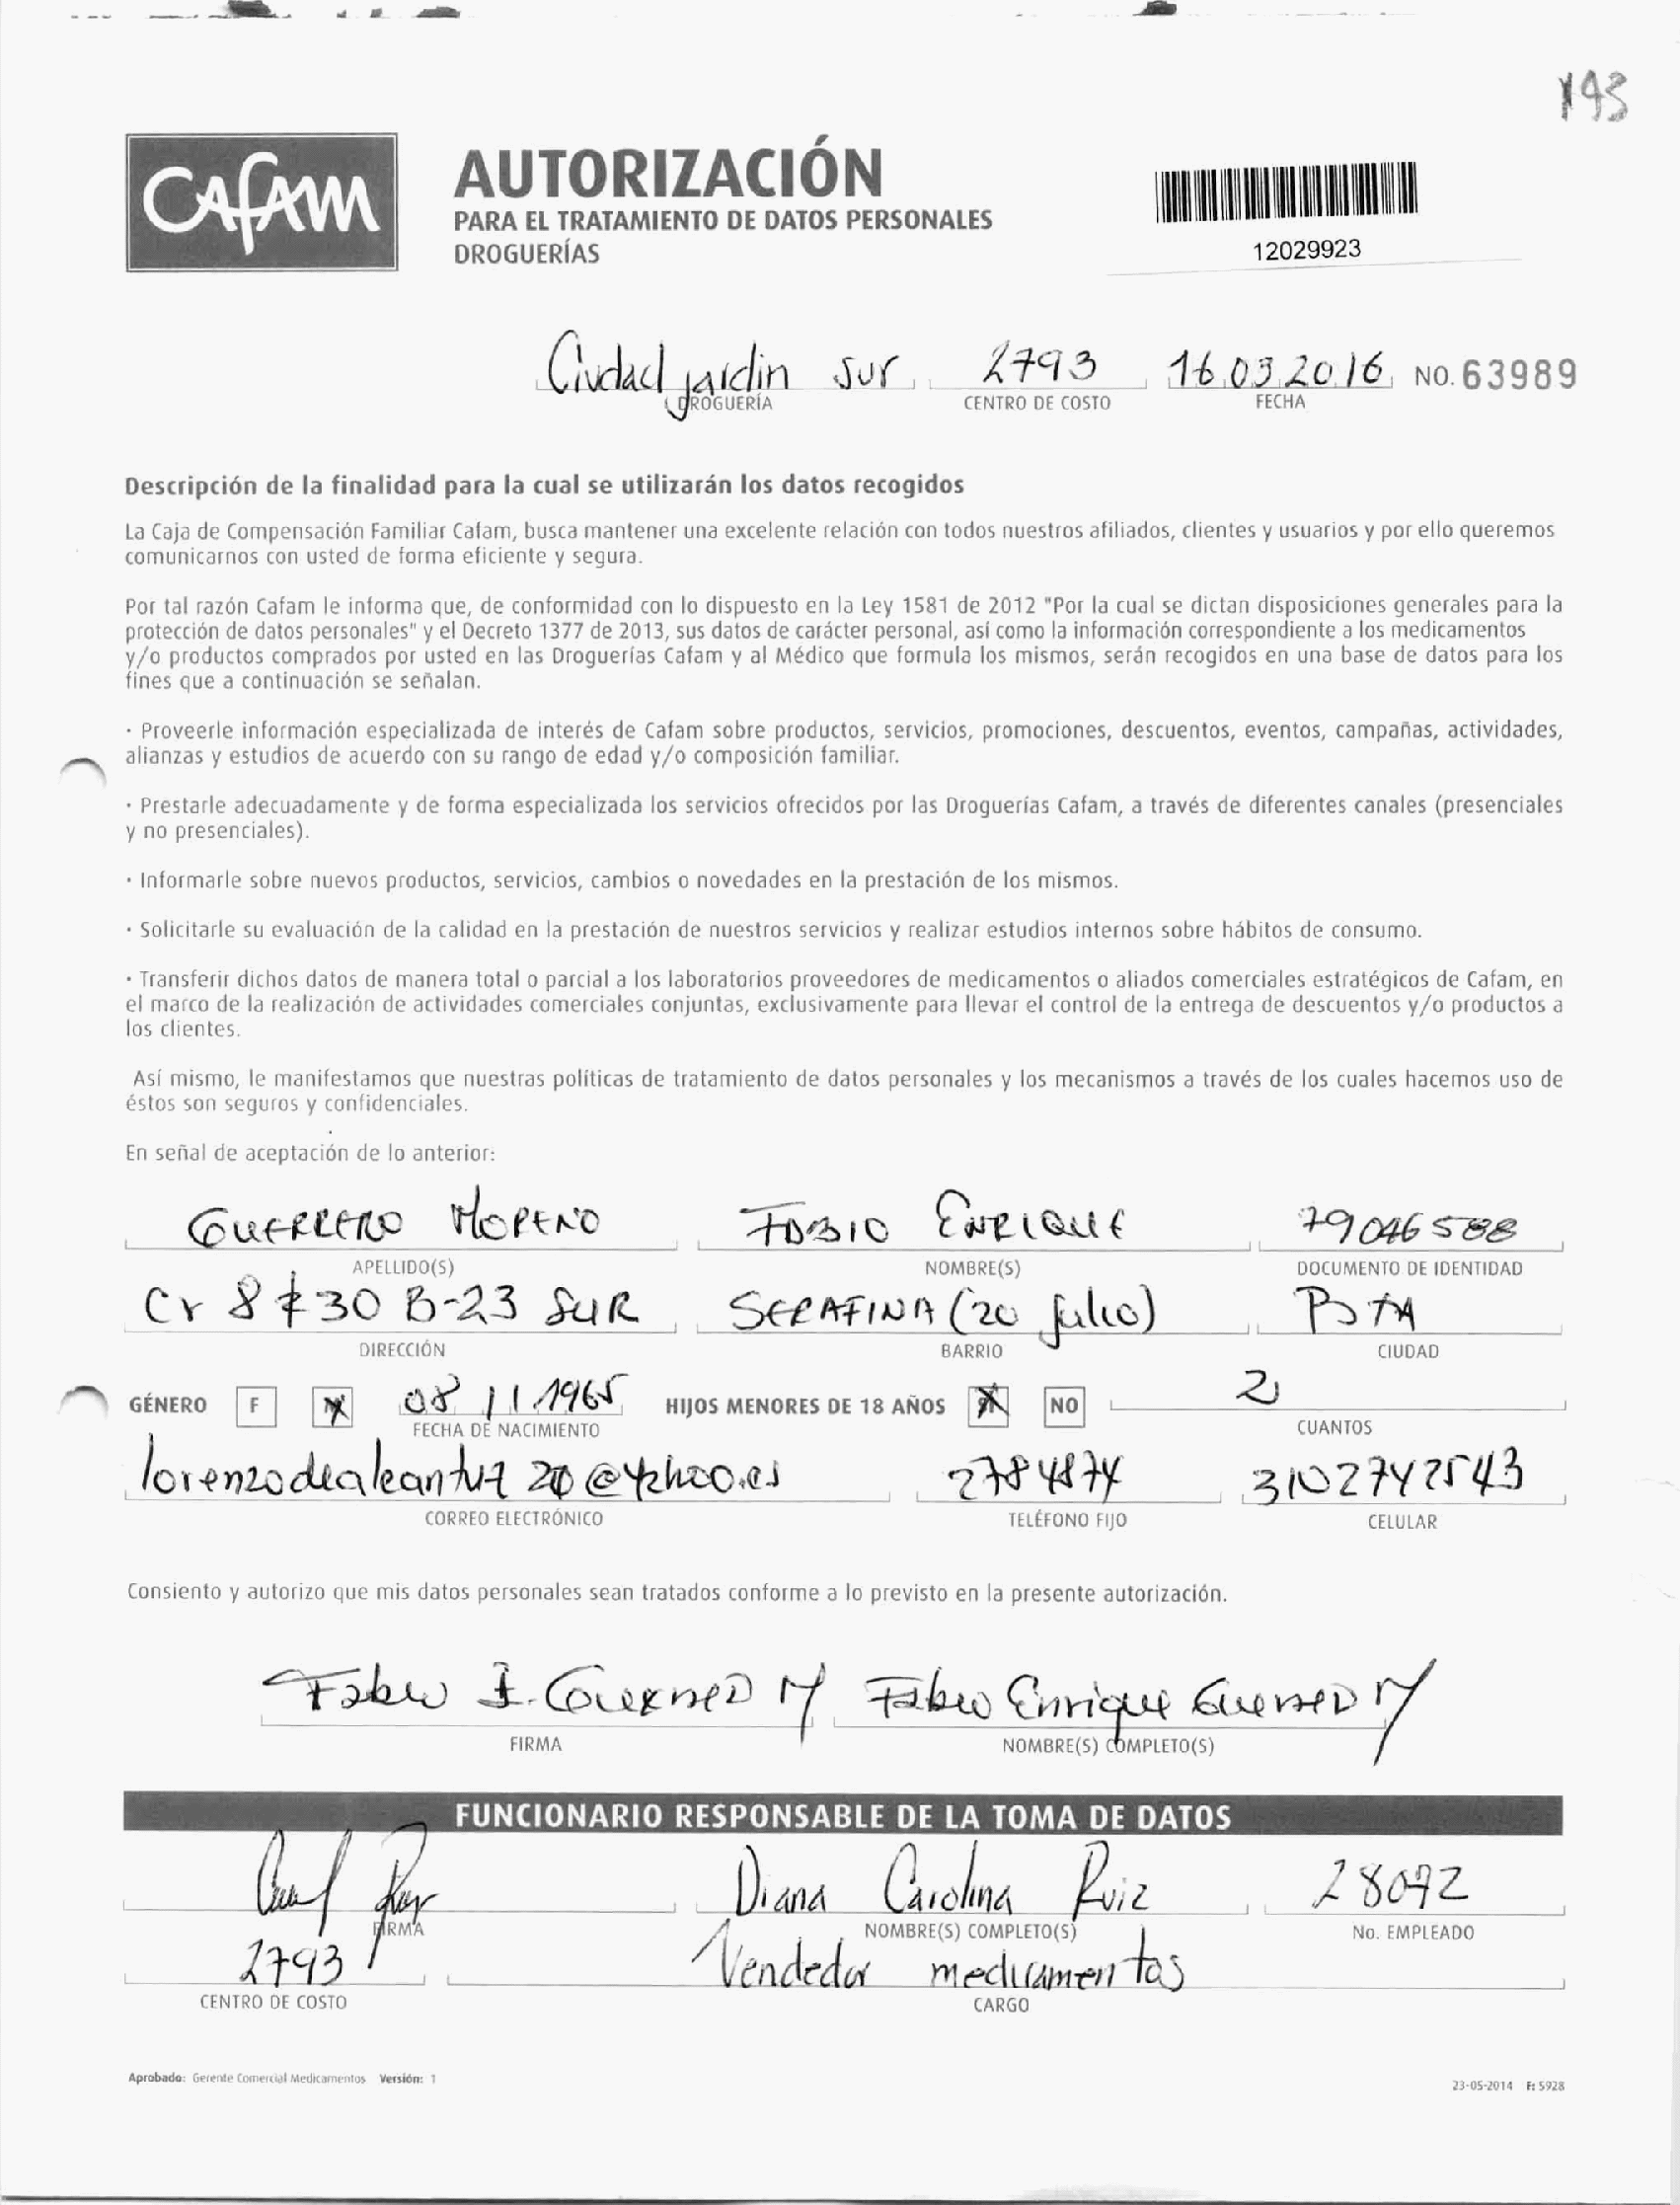 193
CAFAM
AUTORIZACIÓN
PARA EL TRATAMIENTO DE DATOS PERSONALES
DROGUERÍAS
12029923
Ciudad jardin sur 2793 16.03.2016 NO. 63989
DROGUERÍA CENTRO DE COSTO FECHA
Descripción de la finalidad para la cual se utilizarán los datos recogidos
La Caja de Compensación Familiar Cafam, busca mantener una excelente relación con todos nuestros afiliados, clientes y usuarios y por ello queremos
comunicarnos con usted de forma eficiente y segura.
Por tal razón Cafam le informa que, de conformidad con lo dispuesto en la Ley 1581 de 2012 "Por la cual se dictan disposiciones generales para la
protección de datos personales" y el Decreto 1377 de 2013, sus datos de carácter personal, así como la información correspondiente a los medicamentos
y/o productos comprados por usted en las Droguerías Cafam y al Médico que formula los mismos, serán recogidos en una base de datos para los
fines que a continuación se señalan.
· Proveerle información especializada de interés de Cafam sobre productos, servicios, promociones, descuentos, eventos, campañas, actividades,
alianzas y estudios de acuerdo con su rango de edad y/o composición familiar.
· Prestarle adecuadamente y de forma especializada los servicios ofrecidos por las Droguerías Cafam, a través de diferentes canales (presenciales
y no presenciales).
· Informarle sobre nuevos productos, servicios, cambios o novedades en la prestación de los mismos.
· Solicitarle su evaluación de la calidad en la prestación de nuestros servicios y realizar estudios internos sobre hábitos de consumo.
· Transferir dichos datos de manera total o parcial a los laboratorios proveedores de medicamentos o aliados comerciales estratégicos de Cafam, en
el marco de la realización de actividades comerciales conjuntas, exclusivamente para llevar el control de la entrega de descuentos y/o productos a
los clientes.
Así mismo, le manifestamos que nuestras políticas de tratamiento de datos personales y los mecanismos a través de los cuales hacemos uso de
éstos son seguros y confidenciales.
En señal de aceptación de lo anterior:
GUERRERO MORENO FABIO ENRIQUE 79046588
APELLIDO(S) NOMBRE(S) DOCUMENTO DE IDENTIDAD
Cr 8 # 30 B-23 SUR SERAFINA (20 Julio) BTA
DIRECCIÓN BARRIO CIUDAD
GÉNERO F 08 11 1965 HIJOS MENORES DE 18 AÑOS NO 2
FECHA DE NACIMIENTO CUANTOS
2784874 3102742543
CORREO ELECTRÓNICO TELÉFONO FIJO CELULAR
Consiento y autorizo que mis datos personales sean tratados conforme a lo previsto en la presente autorización.
Fabio E. Guerrero M Fabio Enrique Guerrero M
FIRMA NOMBRE(S) COMPLETO(S)
FUNCIONARIO RESPONSABLE DE LA TOMA DE DATOS
Diana Carolina Ruiz 28092
FIRMA NOMBRE(S) COMPLETO(S) No. EMPLEADO
2793 Vendedor medicamentos
CENTRO DE COSTO CARGO
Aprobado: Gerente Comercial Medicamentos Versión: 1
23-05-2014 F: 5928